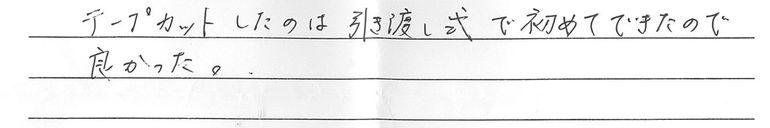 テープカットしたのは引き渡し式で初めてできたので
良かった。